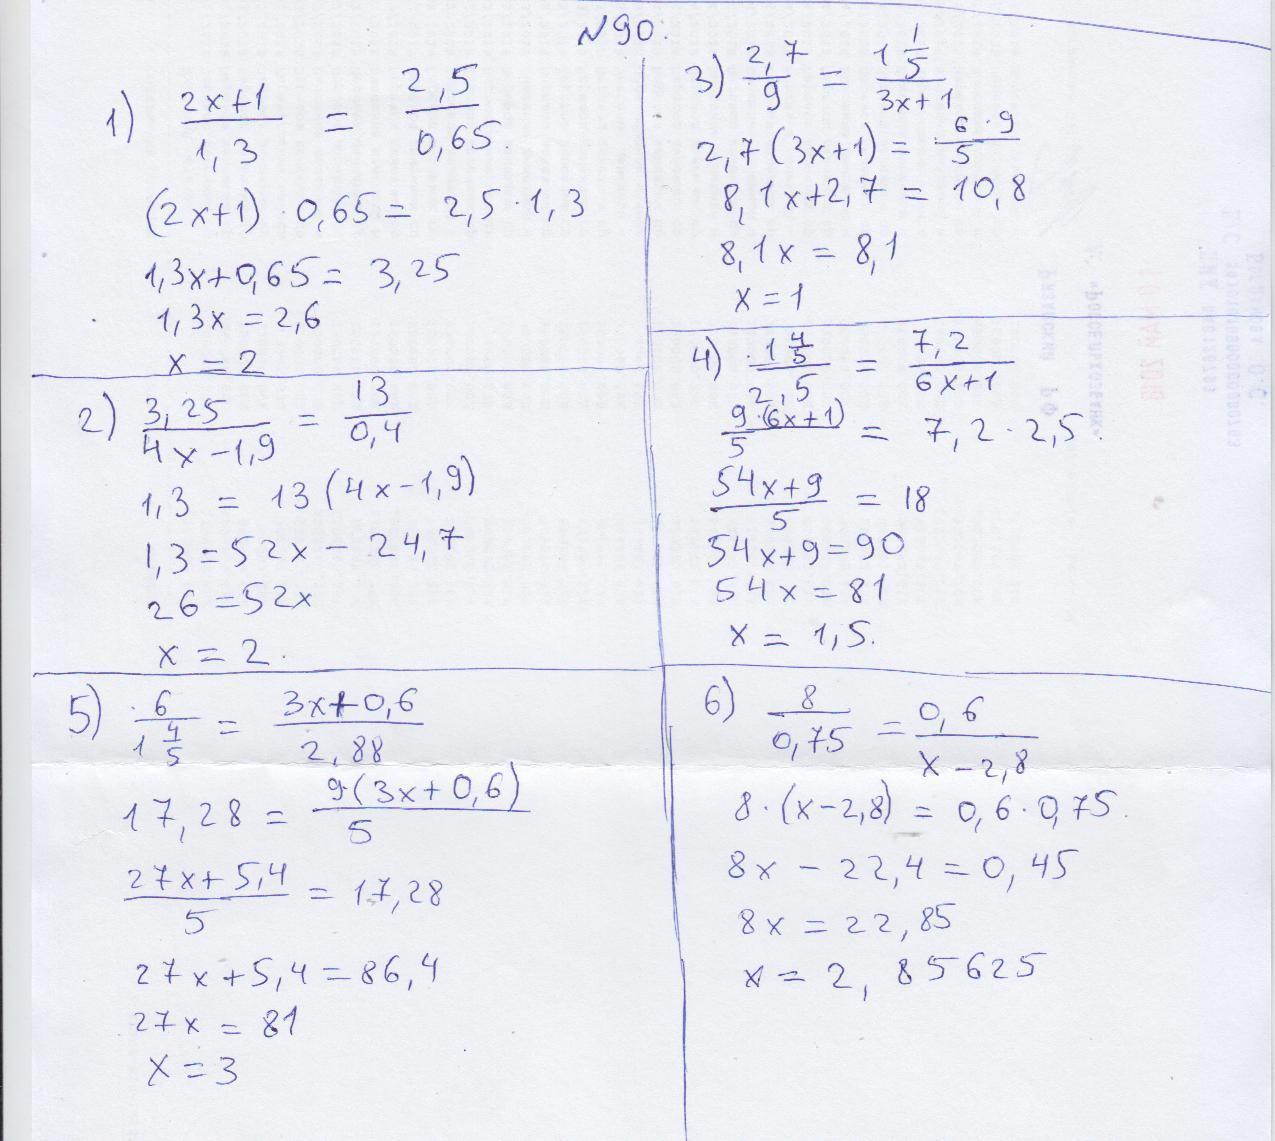 №90.
1) (2x+1)/1,3 = 2,5/0,65.
(2x+1)·0,65 = 2,5·1,3
1,3x+0,65 = 3,25
1,3x = 2,6
x = 2
2) 3,25/(4x-1,9) = 13/0,4
1,3 = 13(4x-1,9)
1,3 = 52x - 24,7
26 = 52x
x = 2.
3) 2,7/9 = 1 1/5/(3x+1)
2,7(3x+1) = 6·9/5
8,1x+2,7 = 10,8
8,1x = 8,1
x = 1
4) 1 4/5/2,5 = 7,2/(6x+1)
9·(6x+1)/5 = 7,2·2,5
(54x+9)/5 = 18
54x+9 = 90
54x = 81
x = 1,5.
5) 6/1 4/5 = (3x+0,6)/2,88
17,28 = 9·(3x+0,6)/5
(27x+5,4)/5 = 17,28
27x+5,4 = 86,4
27x = 81
x = 3
6) 8/0,75 = 0,6/(x-2,8)
8·(x-2,8) = 0,6·0,75.
8x - 22,4 = 0,45
8x = 22,85
x = 2,85625